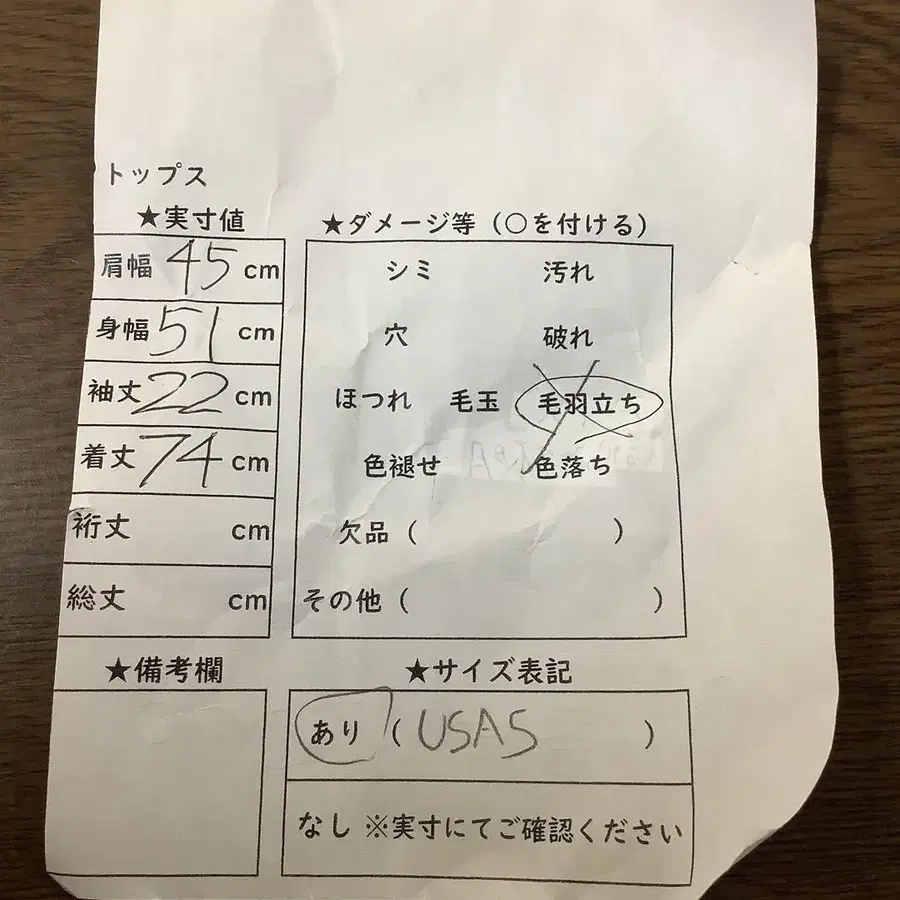 トップス
★実寸値
肩幅 45 cm
身幅 51 cm
袖丈 22 cm
着丈 74 cm
裄丈 cm
総丈 cm
★ダメージ等（○を付ける）
シミ 汚れ
穴 破れ
ほつれ 毛玉 毛羽立ち
色褪せ 色落ち
欠品（ ）
その他（ ）
★備考欄
★サイズ表記
あり（USAS ）
なし ※実寸にてご確認ください